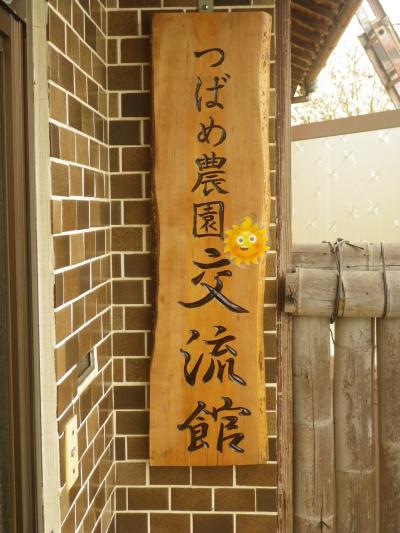 つばめ農園交流館